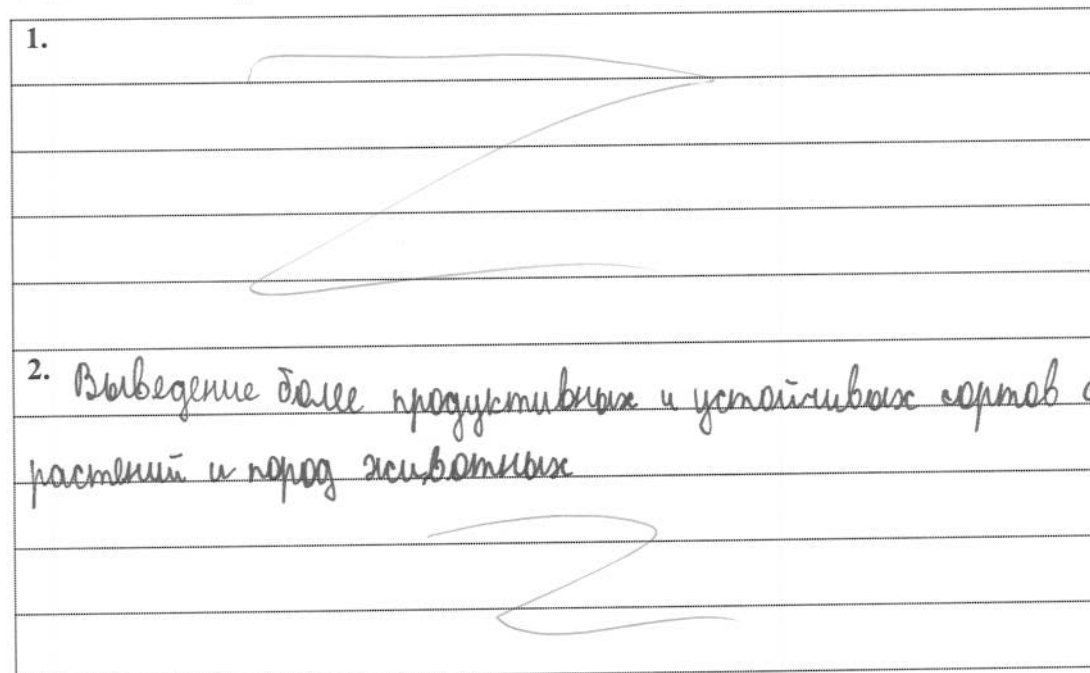 1.
2. Выведение более продуктивных и устойчивых сортов
растений и пород животных